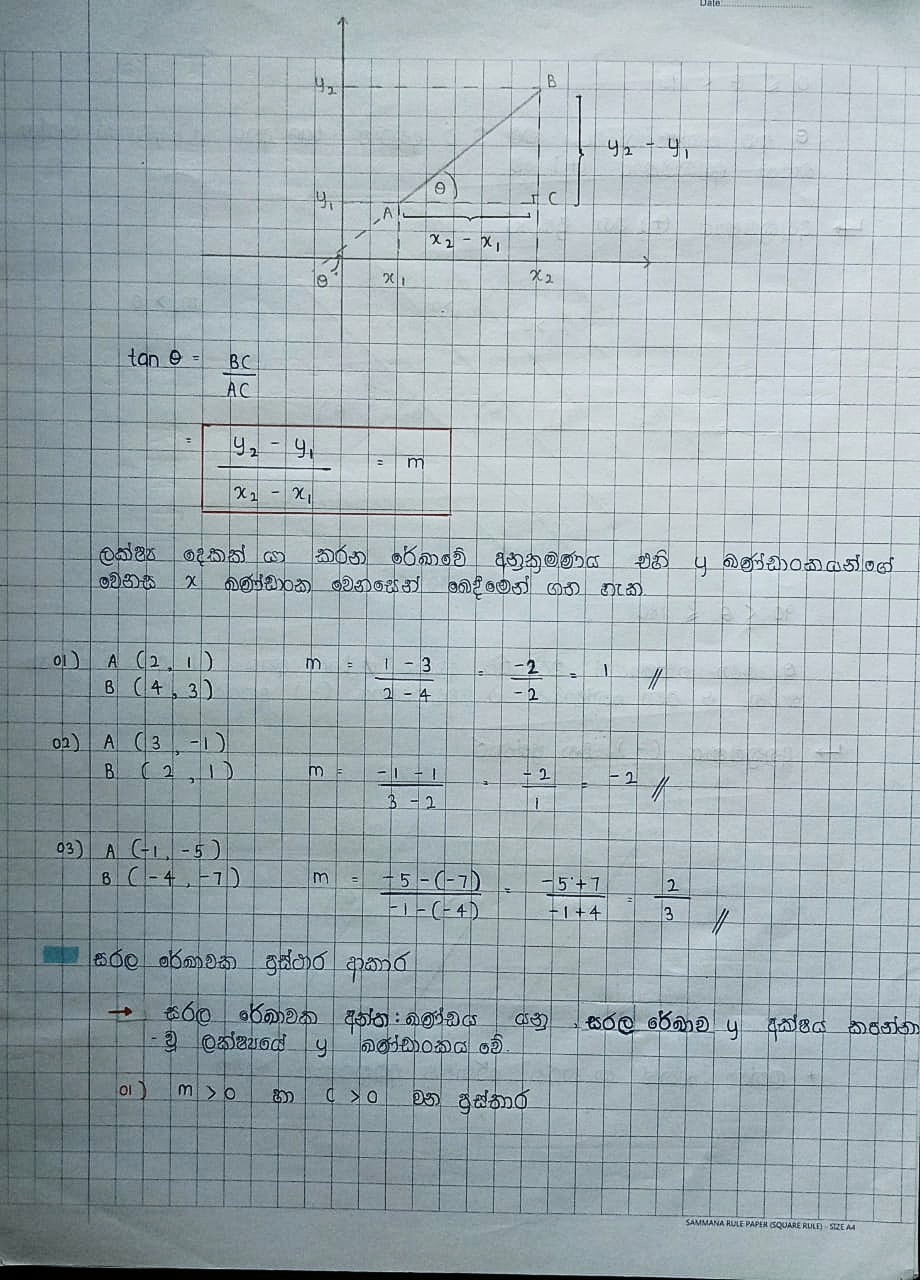 Date:
y₂
B
y₂ - y₁
θ
y₁
A
C
x₂ - x₁
θ
x₁
x₂
tan θ = BC / AC
= y₂ - y₁ / x₂ - x₁ = m
ලක්ෂ්‍ය දෙකක් යා කරන රේඛාවේ අනුක්‍රමණය එහි y ඛණ්ඩාංකයන්ගේ
වෙනස x ඛණ්ඩාංක වෙනසෙන් බෙදීමෙන් ගත හැක
01) A (2, 1) m = 1 - 3 / 2 - 4 = -2 / -2 = 1 //
B (4, 3)
02) A (3, -1)
B (2, 1) m = -1 - 1 / 3 - 2 = -2 / 1 = -2 //
03) A (-1, -5)
B (-4, -7) m = -5 - (-7) / -1 - (-4) = -5 + 7 / -1 + 4 = 2 / 3 //
සරල රේඛාවක ප්‍රස්ථාර ආකාර
→ සරල රේඛාවක අන්ත:ඛණ්ඩය යනු සරල රේඛාව y අක්ෂය කපන්නා
- වූ ලක්ෂ්‍යයේ y ඛණ්ඩාංකය වේ.
01) m > 0 හා c > 0 වන ප්‍රස්තාර
SAMMANA RULE PAPER (SQUARE RULE) - SIZE A4